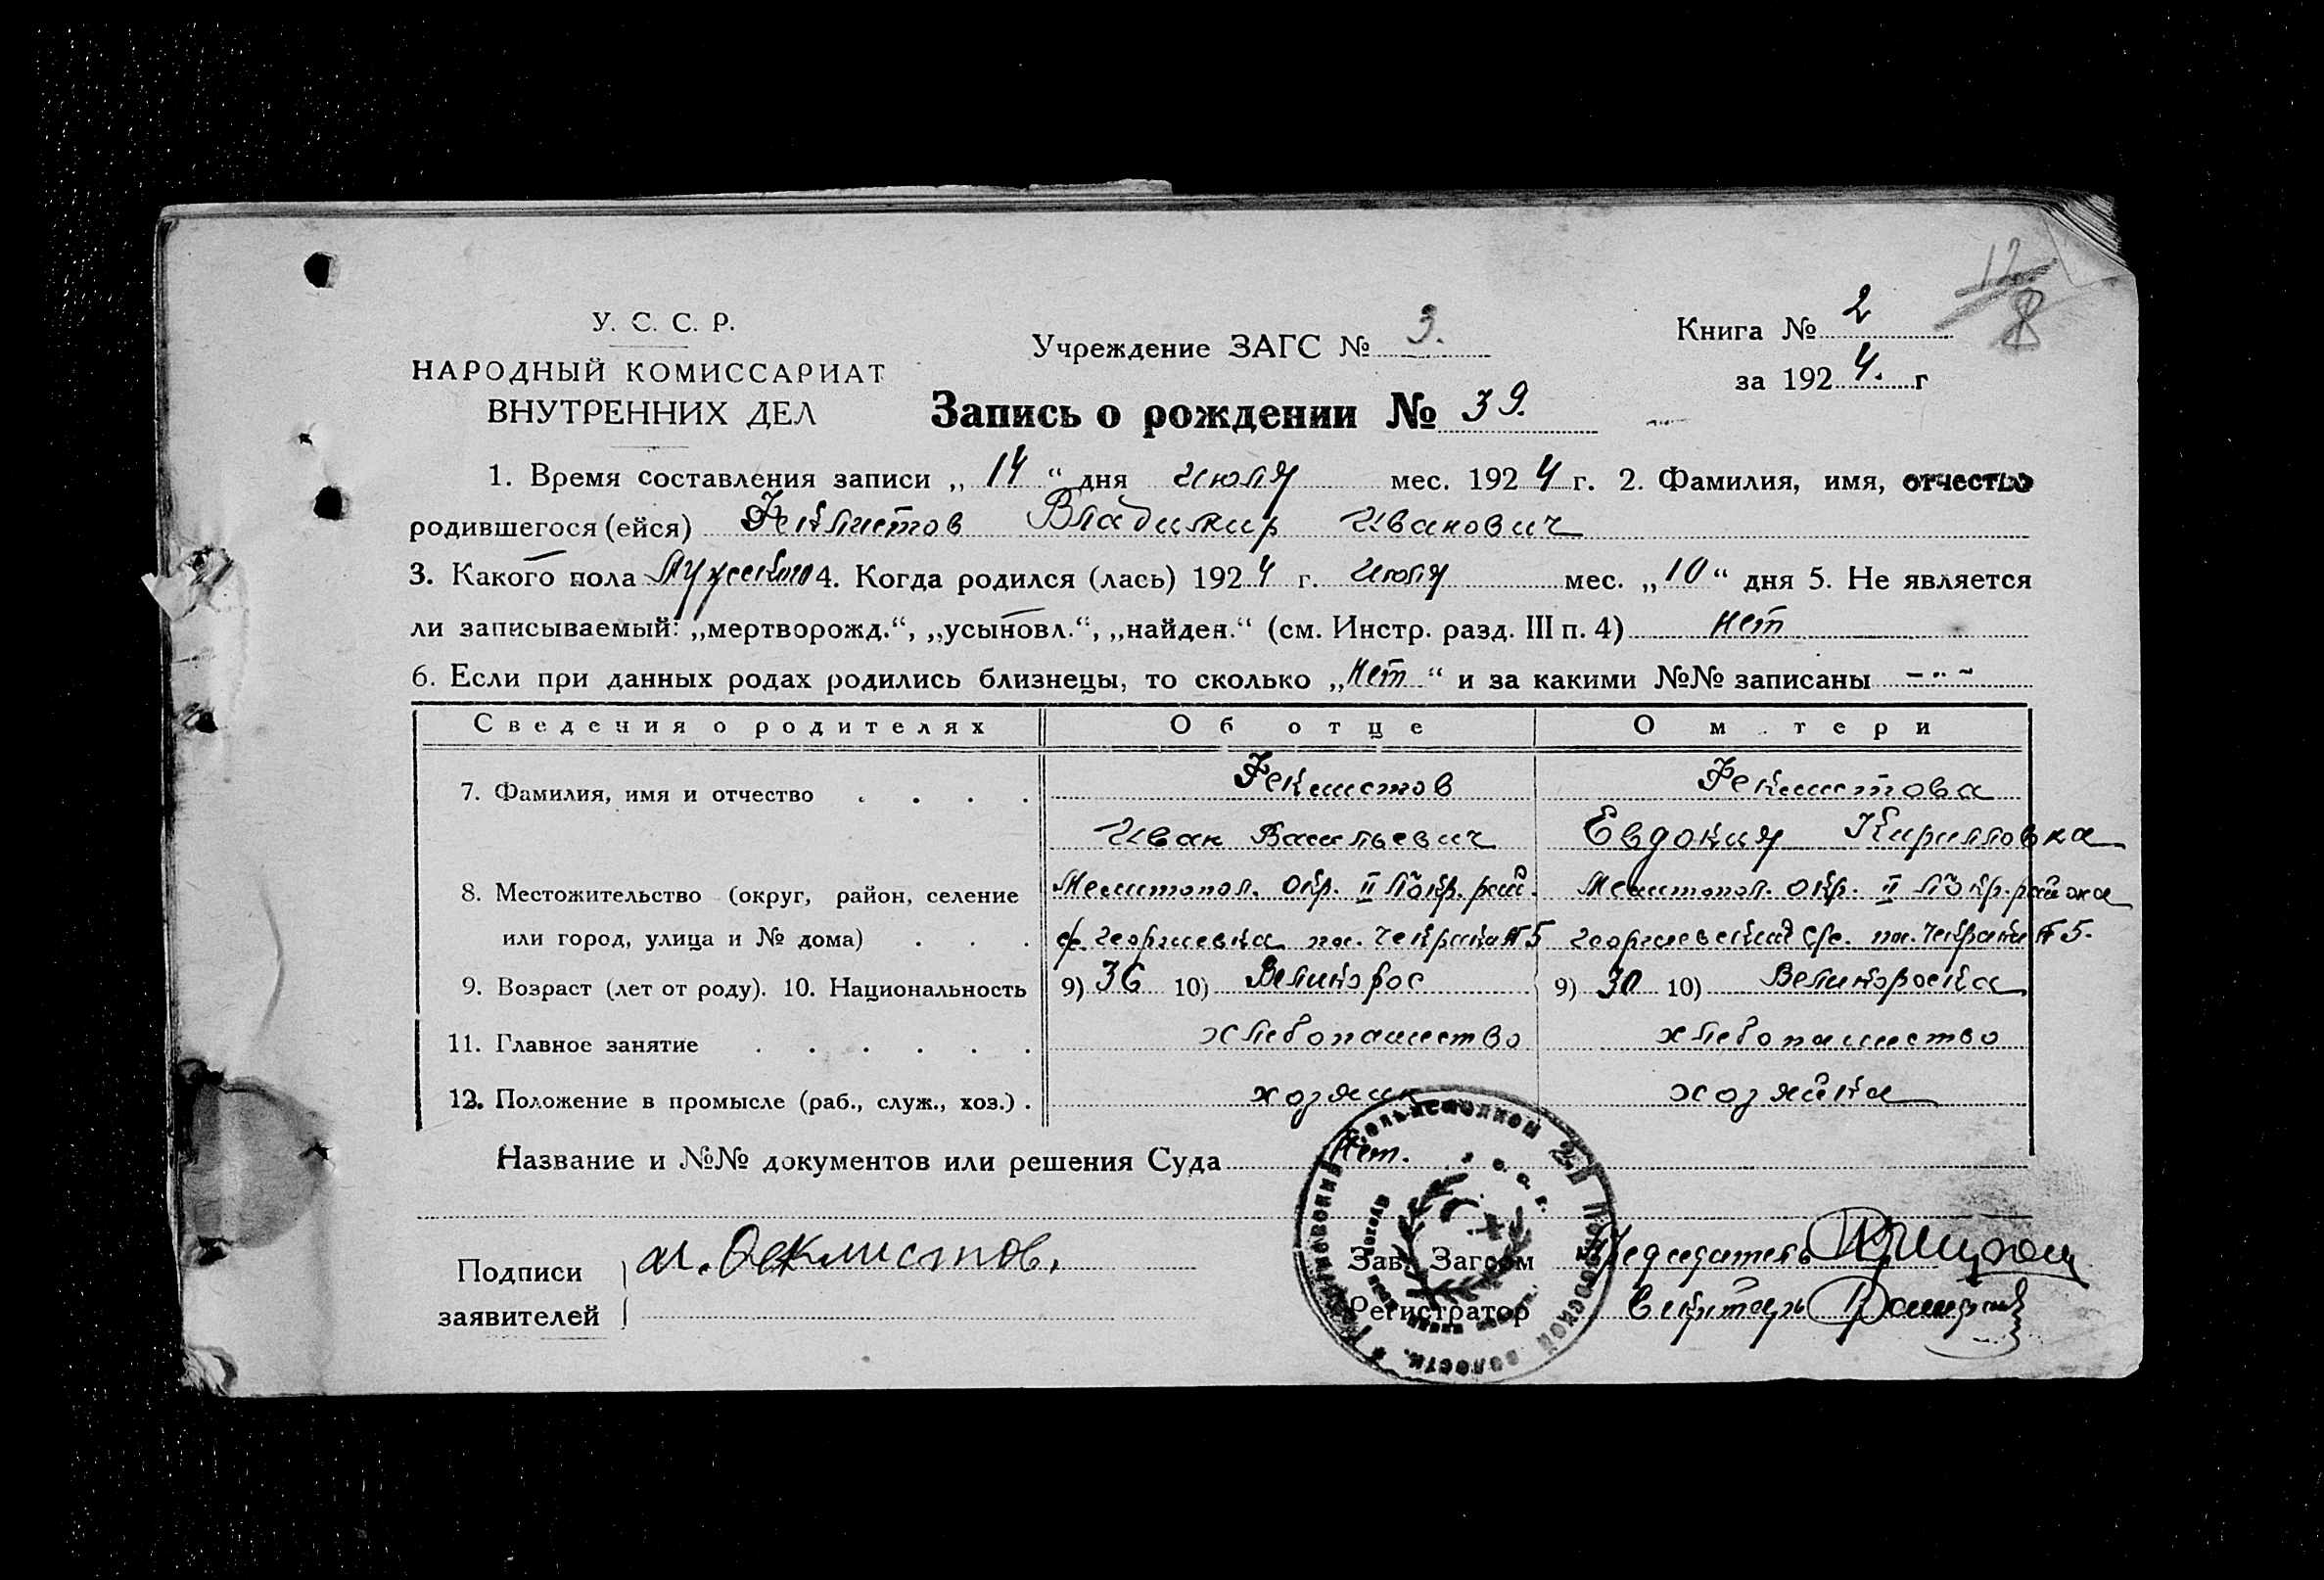 12
8
У. С. С. Р.
НАРОДНЫЙ КОМИССАРИАТ
ВНУТРЕННИХ ДЕЛ
Учреждение ЗАГС № 3.
Книга № 2
за 1924. г
Запись о рождении № 39.
1. Время составления записи „14“ дня июля мес. 1924 г. 2. Фамилия, имя, отчество
родившегося (ейся) Феклистов Владимир Иванович
3. Какого пола Мужского 4. Когда родился (лась) 1924 г. Июля мес. „10“ дня 5. Не является
ли записываемый: „мертворожд.“, „усыновл.“, „найден.“ (см. Инстр. разд. III п. 4) нет
6. Если при данных родах родились близнецы, то сколько „нет“ и за какими №№ записаны
Сведения о родителях Об отце О м тери
7. Фамилия, имя и отчество Феклистов Феклистова
Иван Васильевич Евдокия Кирилловна
8. Местожительство (округ, район, селение Мелитопол. Окр. II Покр. рай. Мелитопол. Окр. II Покр. района
или город, улица и № дома) Георгиевка 5 Георгиевская 5.
9. Возраст (лет от роду). 10. Национальность 9) 36 10) Великорос 9) 30 10) Великороска
11. Главное занятие хлебопашество хлебопашество
12. Положение в промысле (раб., служ., хоз.) хозяин хозяйка
Название и №№ документов или решения Суда Нет.
Сельисполком 2й Покровской волости.
Подписи заявителей И. Феклистов.
Зав. Загсом Председатель
Регистратор Секретарь